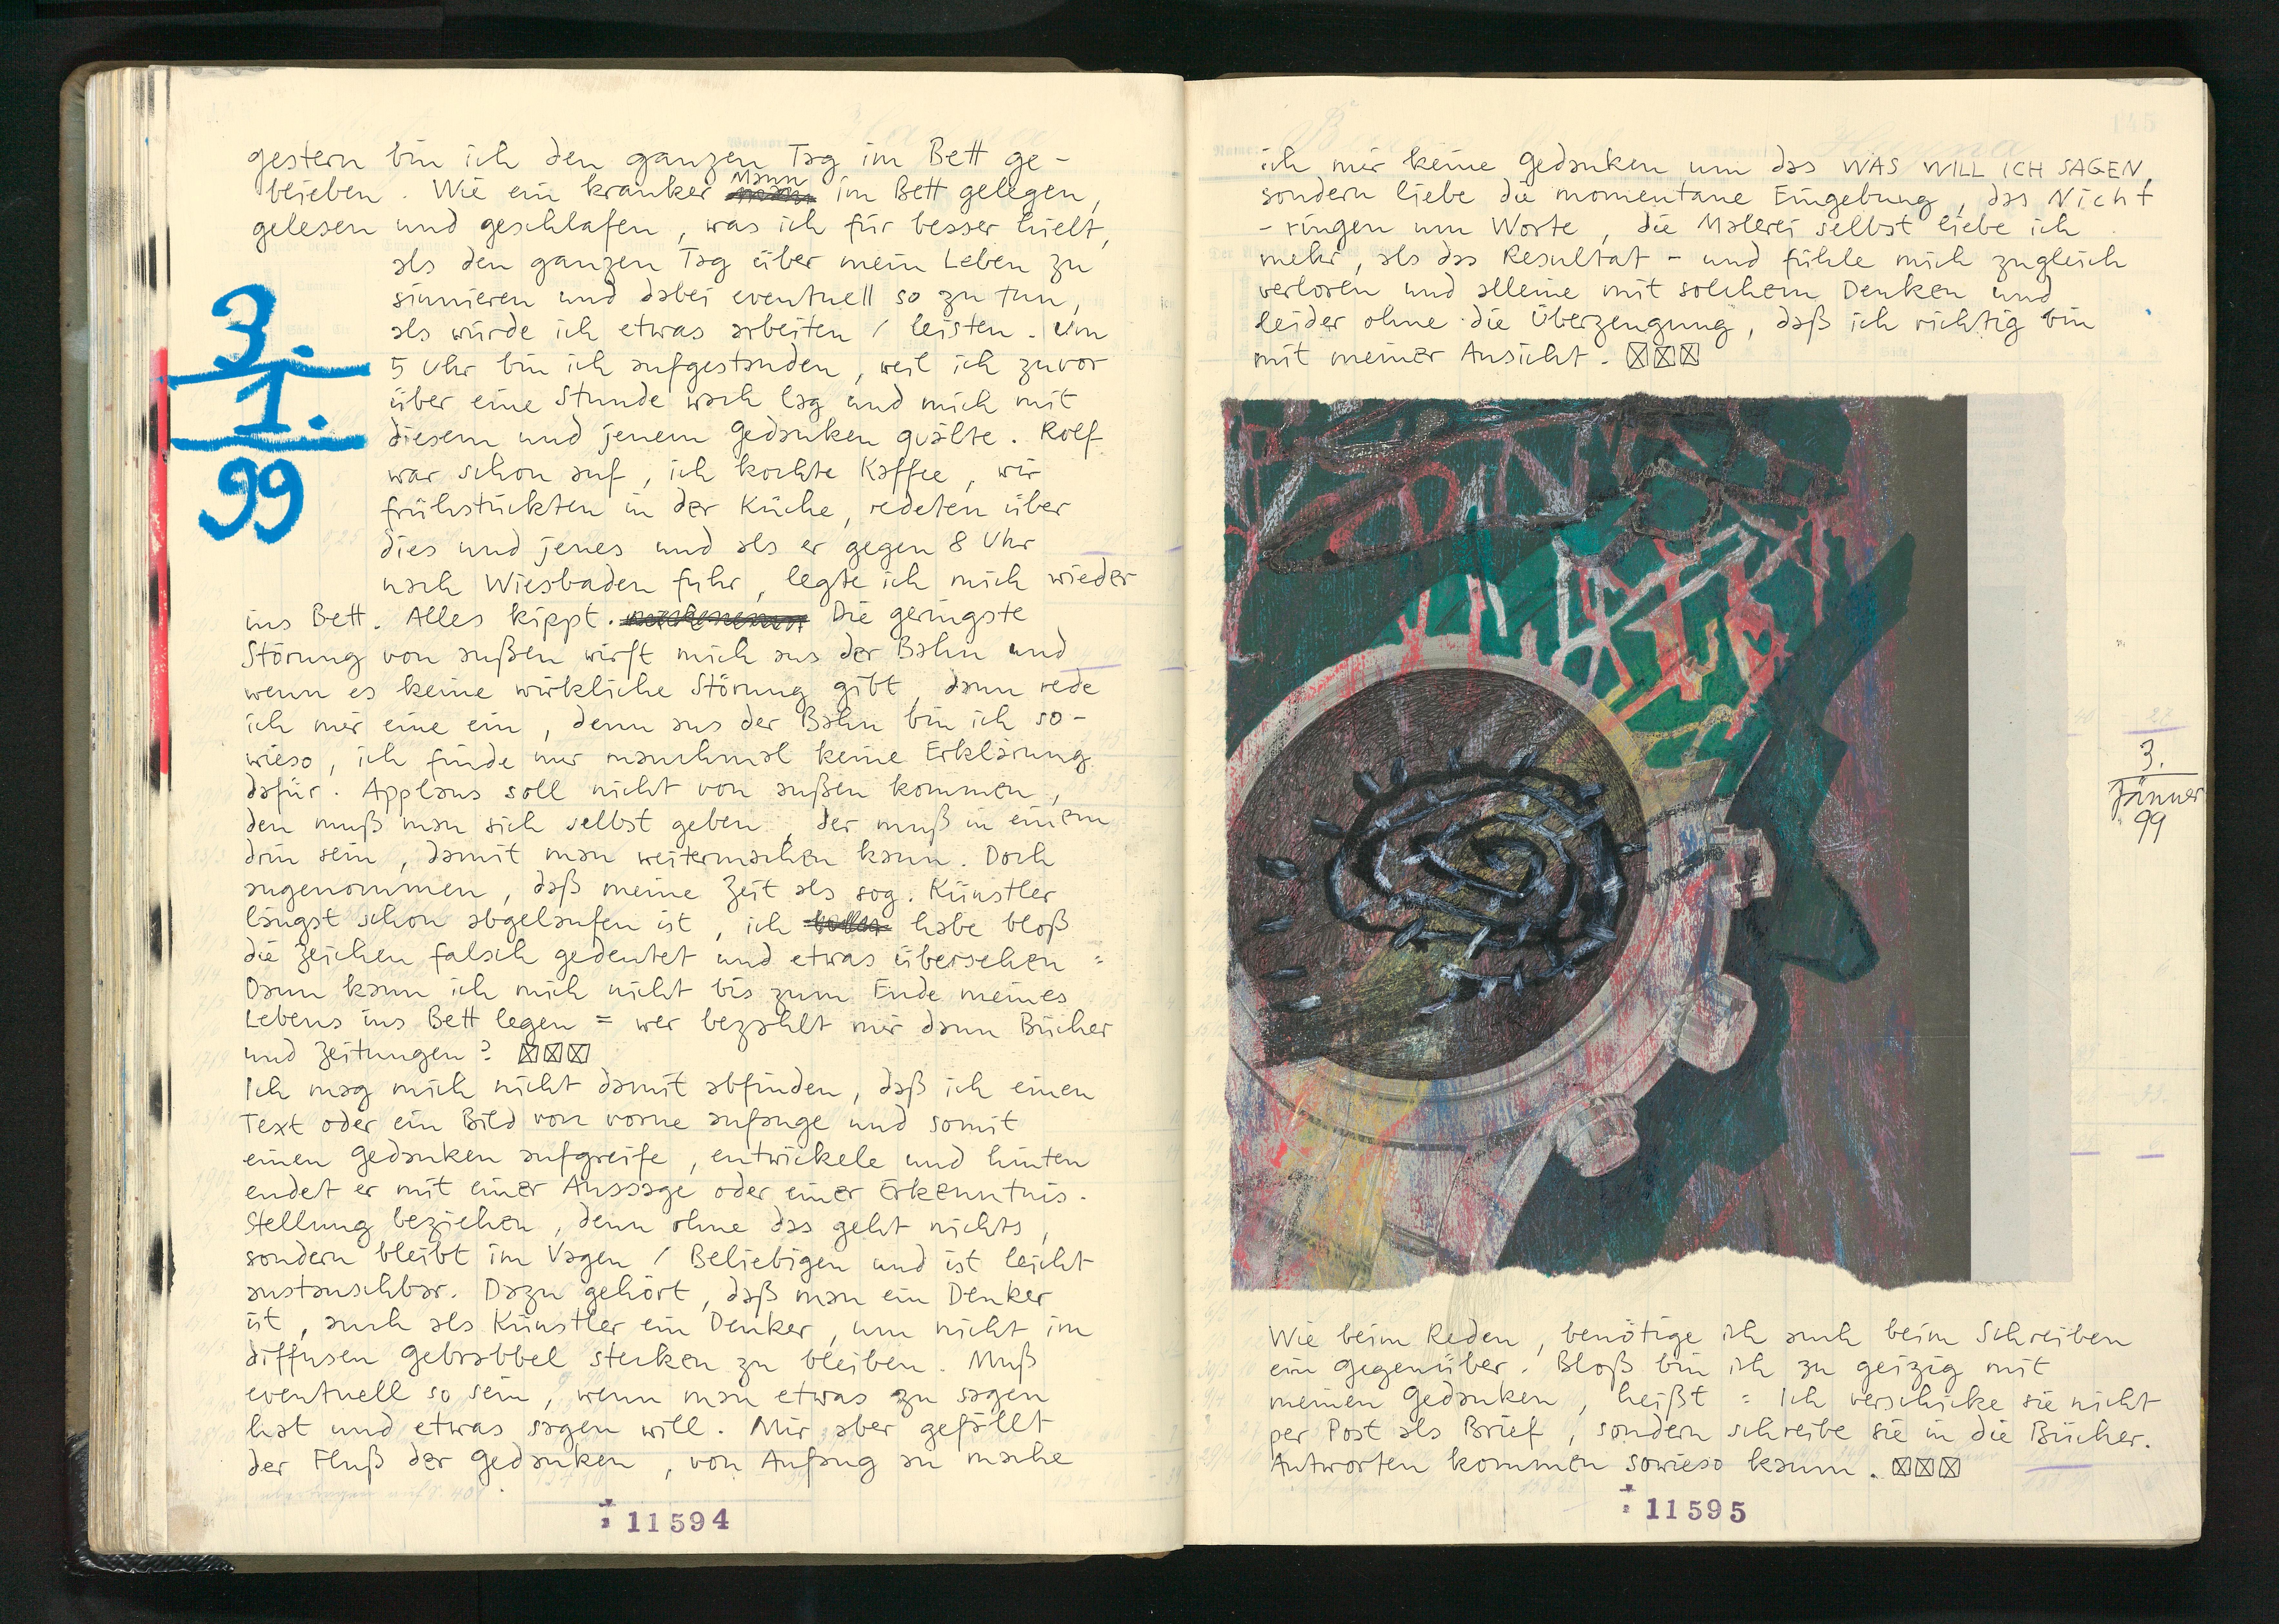 gestern bin ich den ganzen Tag im Bett ge-
blieben. Wie ein kranker Mann im Bett gelegen,
gelesen und geschlafen, was ich für besser hielt,
als den ganzen Tag über mein Leben zu
sinnieren und dabei eventuell so zu tun,
als würde ich etwas arbeiten / leisten. Um
5 Uhr bin ich aufgestanden, weil ich zuvor
über eine Stunde wach lag und mich mit
diesem und jenem Gedanken quälte. Rolf
war schon auf, ich kochte Kaffee, wir
frühstückten in der Küche, redeten über
dies und jenes und als er gegen 8 Uhr
nach Wiesbaden fuhr, legte ich mich wieder
ins Bett. Alles kippt. Die geringste
Störung von außen wirft mich aus der Bahn und
wenn es keine wirkliche Störung gibt, dann rede
ich mir eine ein, denn aus der Bahn bin ich so-
wieso, ich finde nur manchmal keine Erklärung
dafür. Applaus soll nicht von außen kommen,
den muß man sich selbst geben, der muß in einem
drin sein, damit man weitermachen kann. Doch
angenommen, daß meine Zeit als sog. Künstler
längst schon abgelaufen ist, ich habe bloß
die Zeichen falsch gedeutet und etwas übersehen =
Dann kann ich mich nicht bis zum Ende meines
Lebens ins Bett legen = wer bezahlt mir dann Bücher
und Zeitungen? ☒☒☒
Ich mag mich nicht damit abfinden, daß ich einen
Text oder ein Bild von vorne anfange und somit
einen Gedanken aufgreife, entwickele und hinten
endet er mit einer Aussage oder einer Erkenntnis.
Stellung beziehen, denn ohne das geht nichts,
sondern bleibt im Vagen / Beliebigen und ist leicht
austauschbar. Dazu gehört, daß man ein Denker
ist, auch als Künstler ein Denker, um nicht im
diffusen Gebrabbel stecken zu bleiben. Muß
eventuell so sein, wenn man etwas zu sagen
hat und etwas sagen will. Mir aber gefällt
der Fluß der Gedanken, von Anfang an mache
3.
1.
99
11594
ich mir keine Gedanken um das WAS WILL ICH SAGEN,
sondern liebe die momentane Eingebung, das Nicht
-ringen um Worte, die Malerei selbst liebe ich
mehr, als das Resultat - und fühle mich zugleich
verloren und alleine mit solchem Denken und
leider ohne die Überzeugung, daß ich richtig bin
mit meiner Ansicht. ☒☒☒
3.
Jänner
99
Wie beim Reden, benötige ich auch beim Schreiben
ein Gegenüber. Bloß bin ich zu geizig mit
meinen Gedanken, heißt = Ich verschicke sie nicht
per Post als Brief, sondern schreibe sie in die Bücher.
Antworten kommen sowieso kaum. ☒☒☒
11595
145